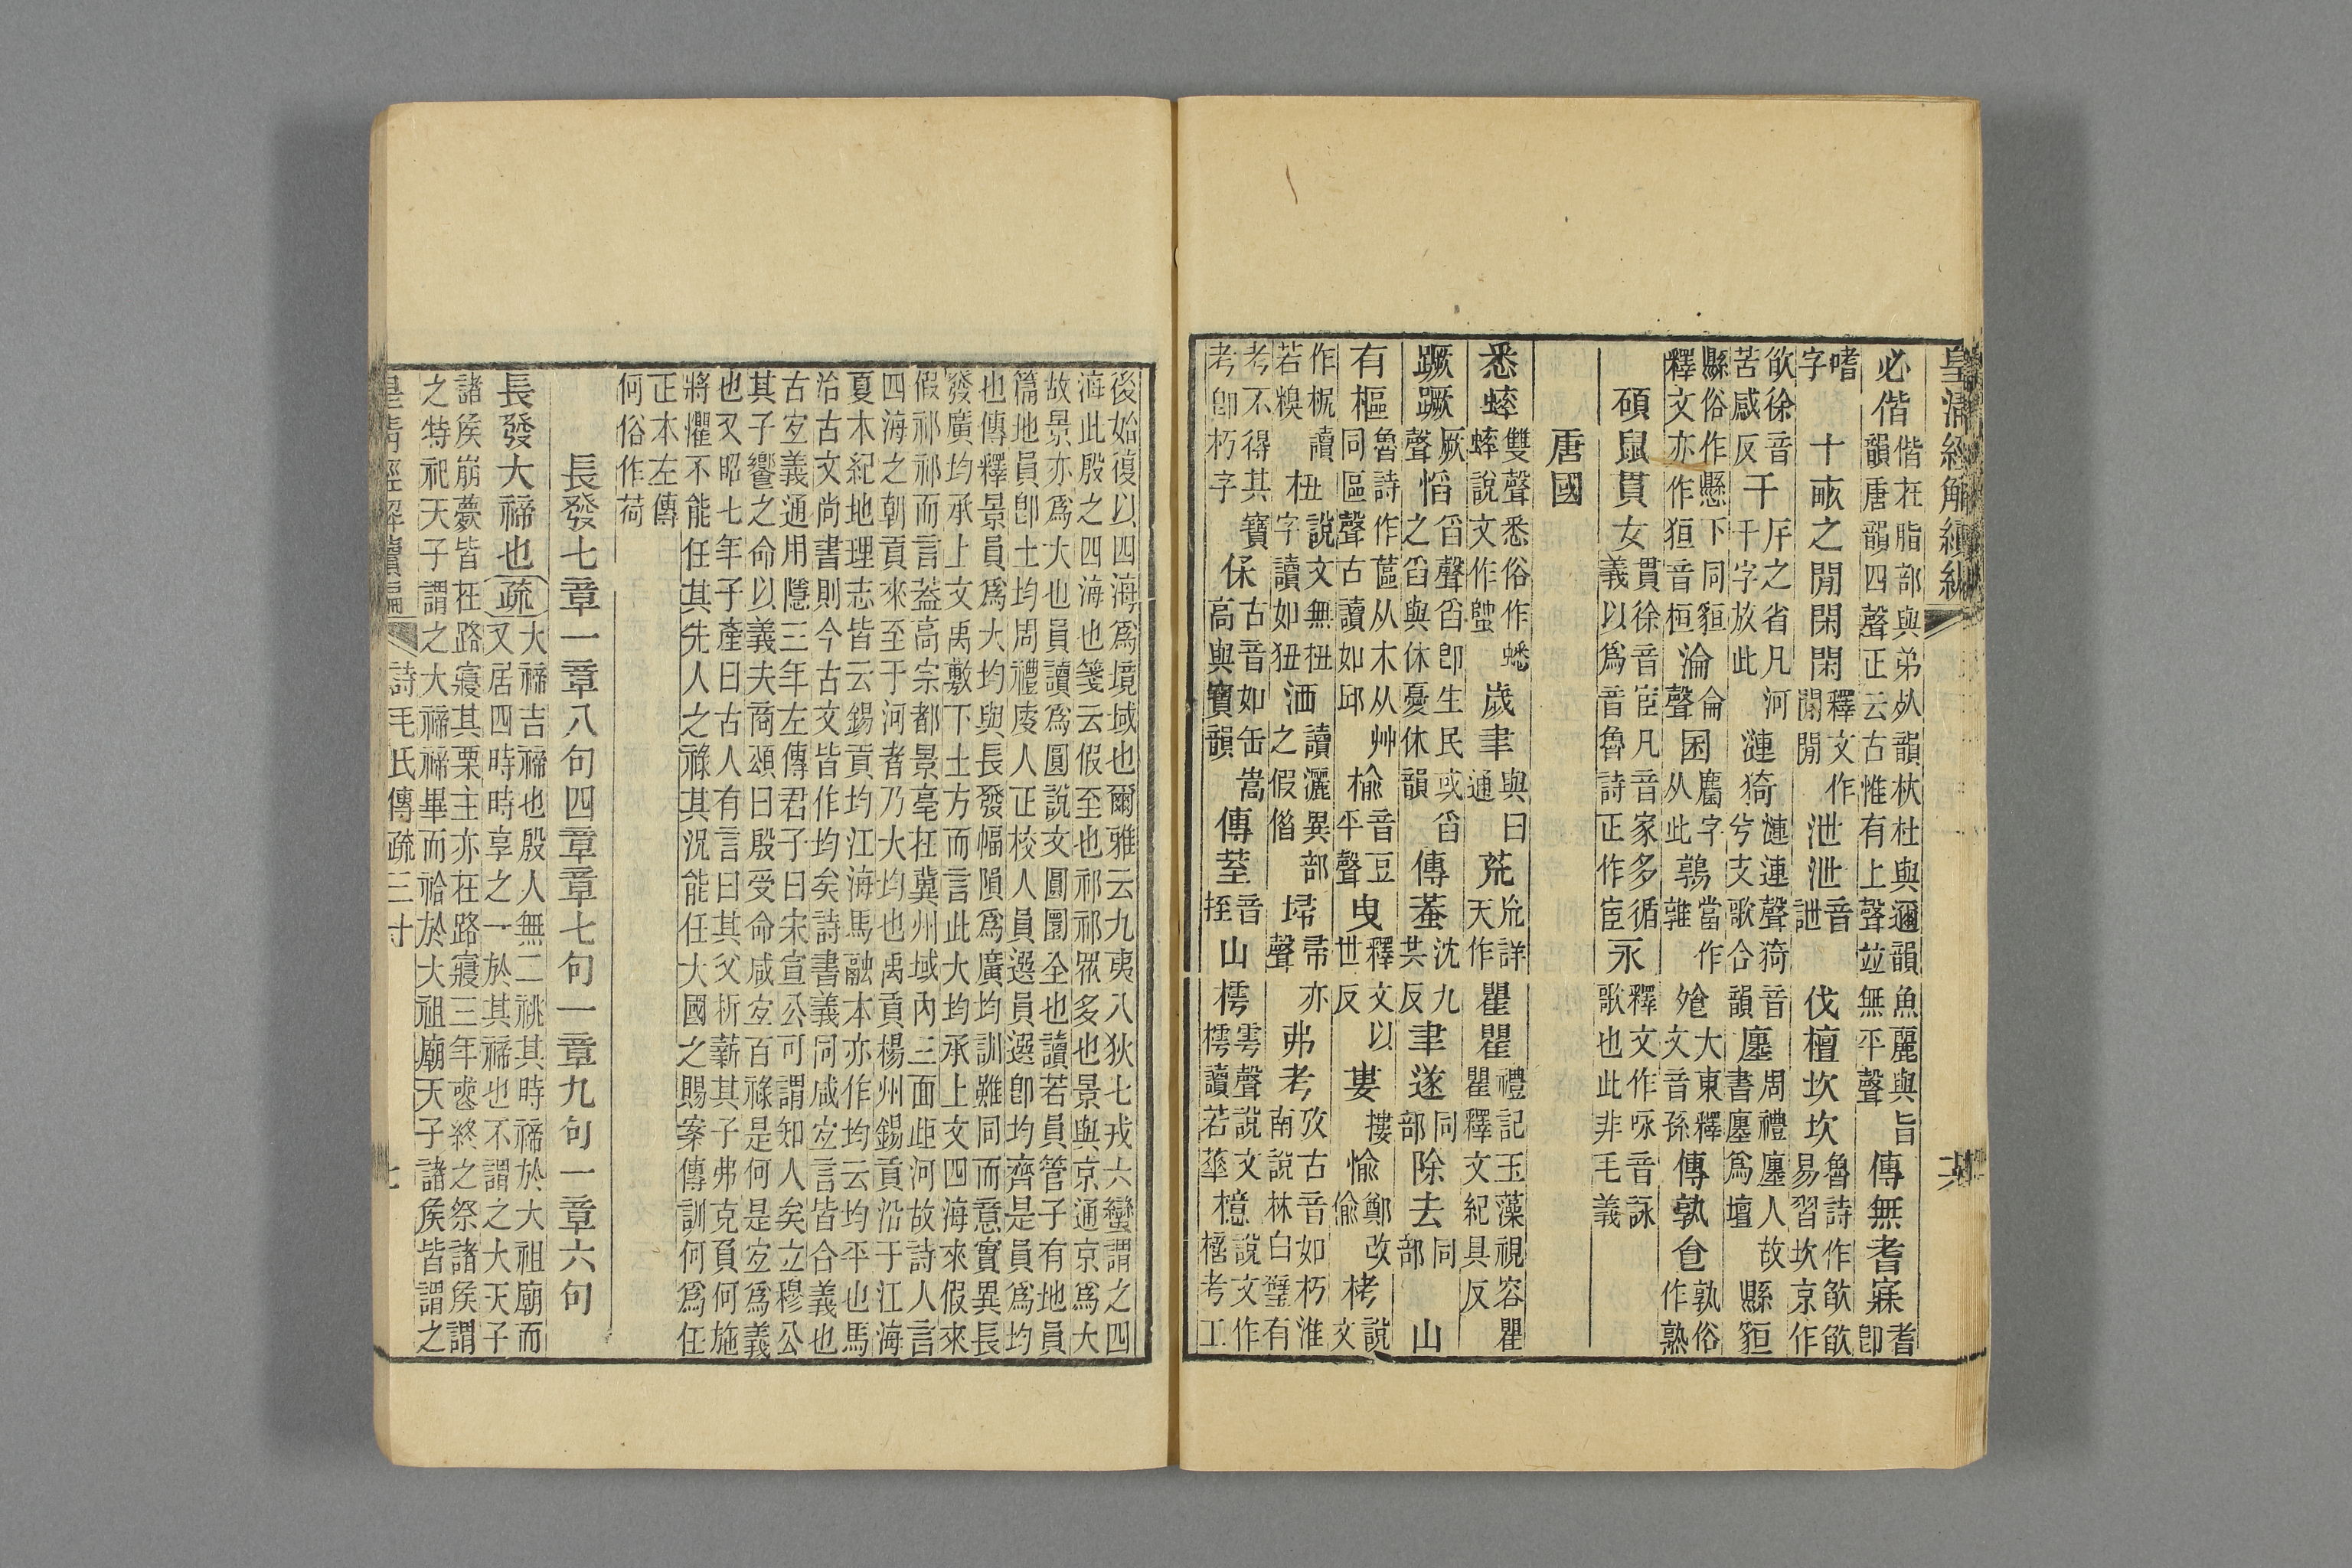 皇清經解續編
必偕偕在脂部與弟死韻杕杜與邇韻魚麗與旨
韻唐韻四聲正云古惟有上聲竝無平聲傳無耆寐耆卽
嗜字十畝之閒閑閑釋文作閒閒泄泄音詍伐檀坎坎魯詩作欿欿易習坎京作欿
欿徐音苦感反干厈之省凡干字放此河漣猗漣連聲猗兮支歌合韻音廛周禮廛人故書廛爲壇縣貆
縣俗作懸下同貆釋文亦作狟音桓淪侖聲囷麕字从此鶉當作雜飧大東釋文音孫傳孰食孰俗作熟
碩鼠貫女貫徐音宦凡音家多循義以爲音魯詩正作宦永釋文作咏音詠歌也此非毛義
唐國
悉蟀雙聲悉俗作蟋蟀說文作䗐歲聿與曰通荒㐬詳天作瞿瞿禮記玉藻視容瞿瞿釋文紀具反
蹶蹶厥聲慆舀聲舀卽生民或舀之舀與休憂休韻傳蠶沈九共反聿遂同部除去同部山
有樞魯詩作蓲从木从艸同區聲古讀如邱榆音豆平聲曳釋文以世反婁摟愉鄭改偷栲說文
作㭓讀若糗杻說文無杻字讀如狃洒讀灑異部之假偝埽帚聲亦弗考攷古音如朽淮南說林白璧有
考不得其卽朽字寶保古音如缶嵩高與寶韻傳荎音挃山樗雩聲說文作樗讀若華檍說文作㯳考工
後始復以四海爲境域也爾雅云九夷八狄七戎六蠻謂之四
海此殷之四海也箋云假至也祁祁眾多也景與京通京爲大
故景亦爲大也員讀爲圓說文圓圜全也讀若員管子有地員
篇地員卽土均周禮廋人正校人員選員選卽均齊是員爲均
也傳釋景員爲大均與長發幅隕爲廣均訓雖同而意實異長
發廣均承上文禹敷下土方而言此大均承上文四海來假來
假祁祁而言蓋高宗都景亳在冀州域內三面距河故詩人言
四海之朝貢來至于河者乃大均也禹貢楊州錫貢沿于江海
夏本紀地理志皆云錫貢均江海馬融本亦作均云均平也馬
治古文尚書則今古文皆作均矣詩書義同咸宜言皆合義也
古宜義通用隱三年左傳君子曰宋宣公可謂知人矣立穆公
其子饗之命以義夫商頌曰殷受命咸宜百祿是何是宜爲義
也又昭七年子產曰古人有言曰其父析薪其子弗克負何施
將懼不能任其先人之祿其況能任大國之賜案傳訓何爲任
正本左傳
何俗作荷
長發七章一章八句四章章七句一章九句一章六句
長發大禘也疏大禘吉禘也殷人無二祧其時禘於大祖廟而
又居四時時享之一於其禘也不謂之大天子
諸侯崩薨皆在路寢其栗主亦在路寢三年喪終之祭諸侯謂
之特祀天子謂之大禘禘畢而祫於大祖廟天子諸侯皆謂之
皇清經解續編 詩毛氏傳疏三十 七